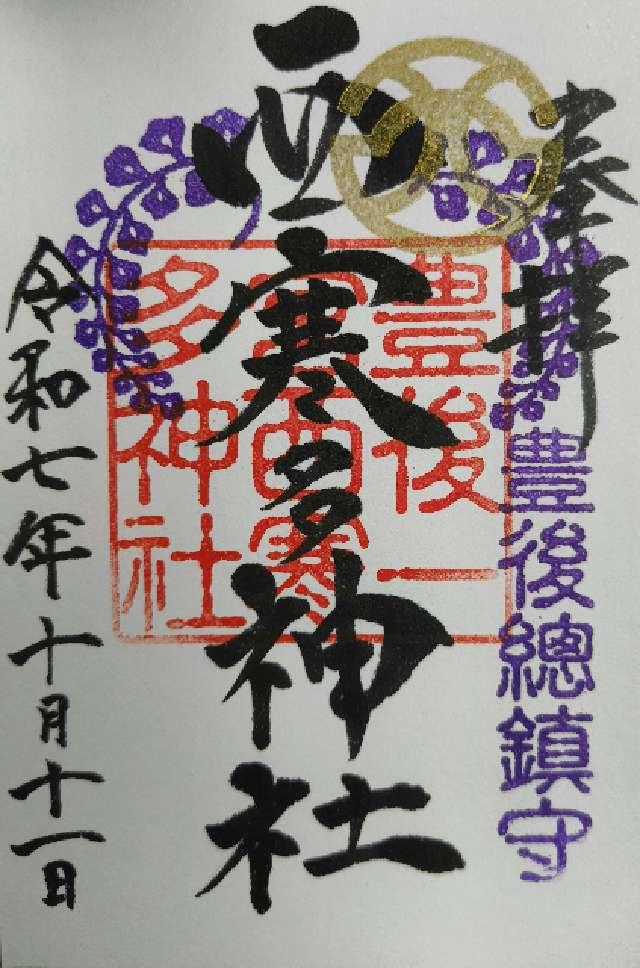 奉拝
豊後總鎮守
西寒多神社
豊後一
宮西寒
多神社
令和七年十月十一日